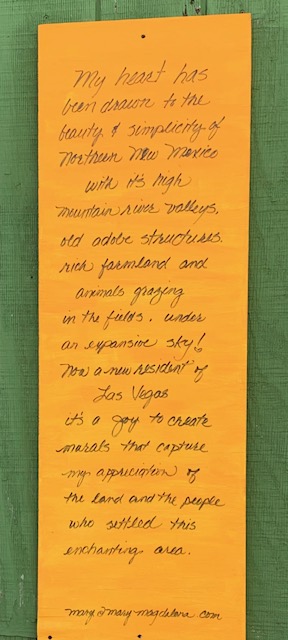 My heart has
been drawn to the
beauty & simplicity of
Northern New Mexico
with it's high
mountain river valleys,
old adobe structures.
rich farmland and
animals grazing
in the fields. under
an expansive sky!
Now a new resident of
Las Vegas
it's a joy to create
murals that capture
my appreciation of
the land and the people
who settled this
enchanting area.
mary@mary-magdalena.com